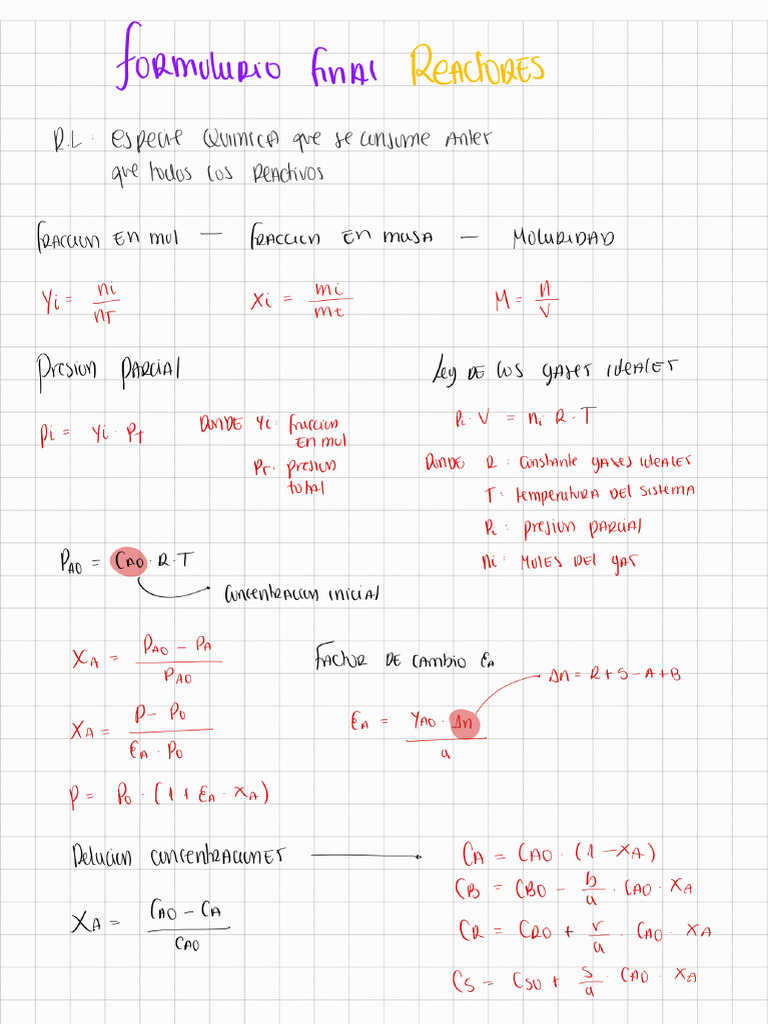 Formulario final Reactores
R.L: especie quimica que se consume antes
que todos los reactivos
fraccion en mol — fraccion en masa — Molaridad
Yi = ni/nT
Xi = mi/mt
M = n/V
Presion Parcial
Ley de los gases ideales
Pi = Yi · PT
Donde Yi: fraccion
en mol
PT: presion
total
Pi · V = ni R · T
Donde R: constante gases ideales
T: temperatura del sistema
Pi: presion parcial
ni: moles del gas
PAO = CAO · R · T
Concentracion inicial
XA = (PAO − PA)/PAO
Factor de cambio εA
Δn = R + S − A + B
εA = (YAO · Δn)/a
XA = (P − PO)/(εA · PO)
P = PO · (1 + εA · XA)
Relacion concentraciones
XA = (CAO − CA)/CAO
CA = CAO · (1 − XA)
CB = CBO − b/a · CAO · XA
CR = CRO + r/a · CAO · XA
CS = CSO + s/a · CAO · XA